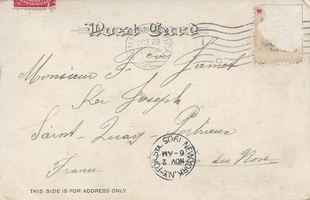 Post Card
OCT 28
Monsieur F. Jamet
Ker Joseph
Saint-Quay-Portrieux
du Nord
France
NEW YORK, N.Y.
NOV 2
6-AM
1905
THIS SIDE IS FOR ADDRESS ONLY.